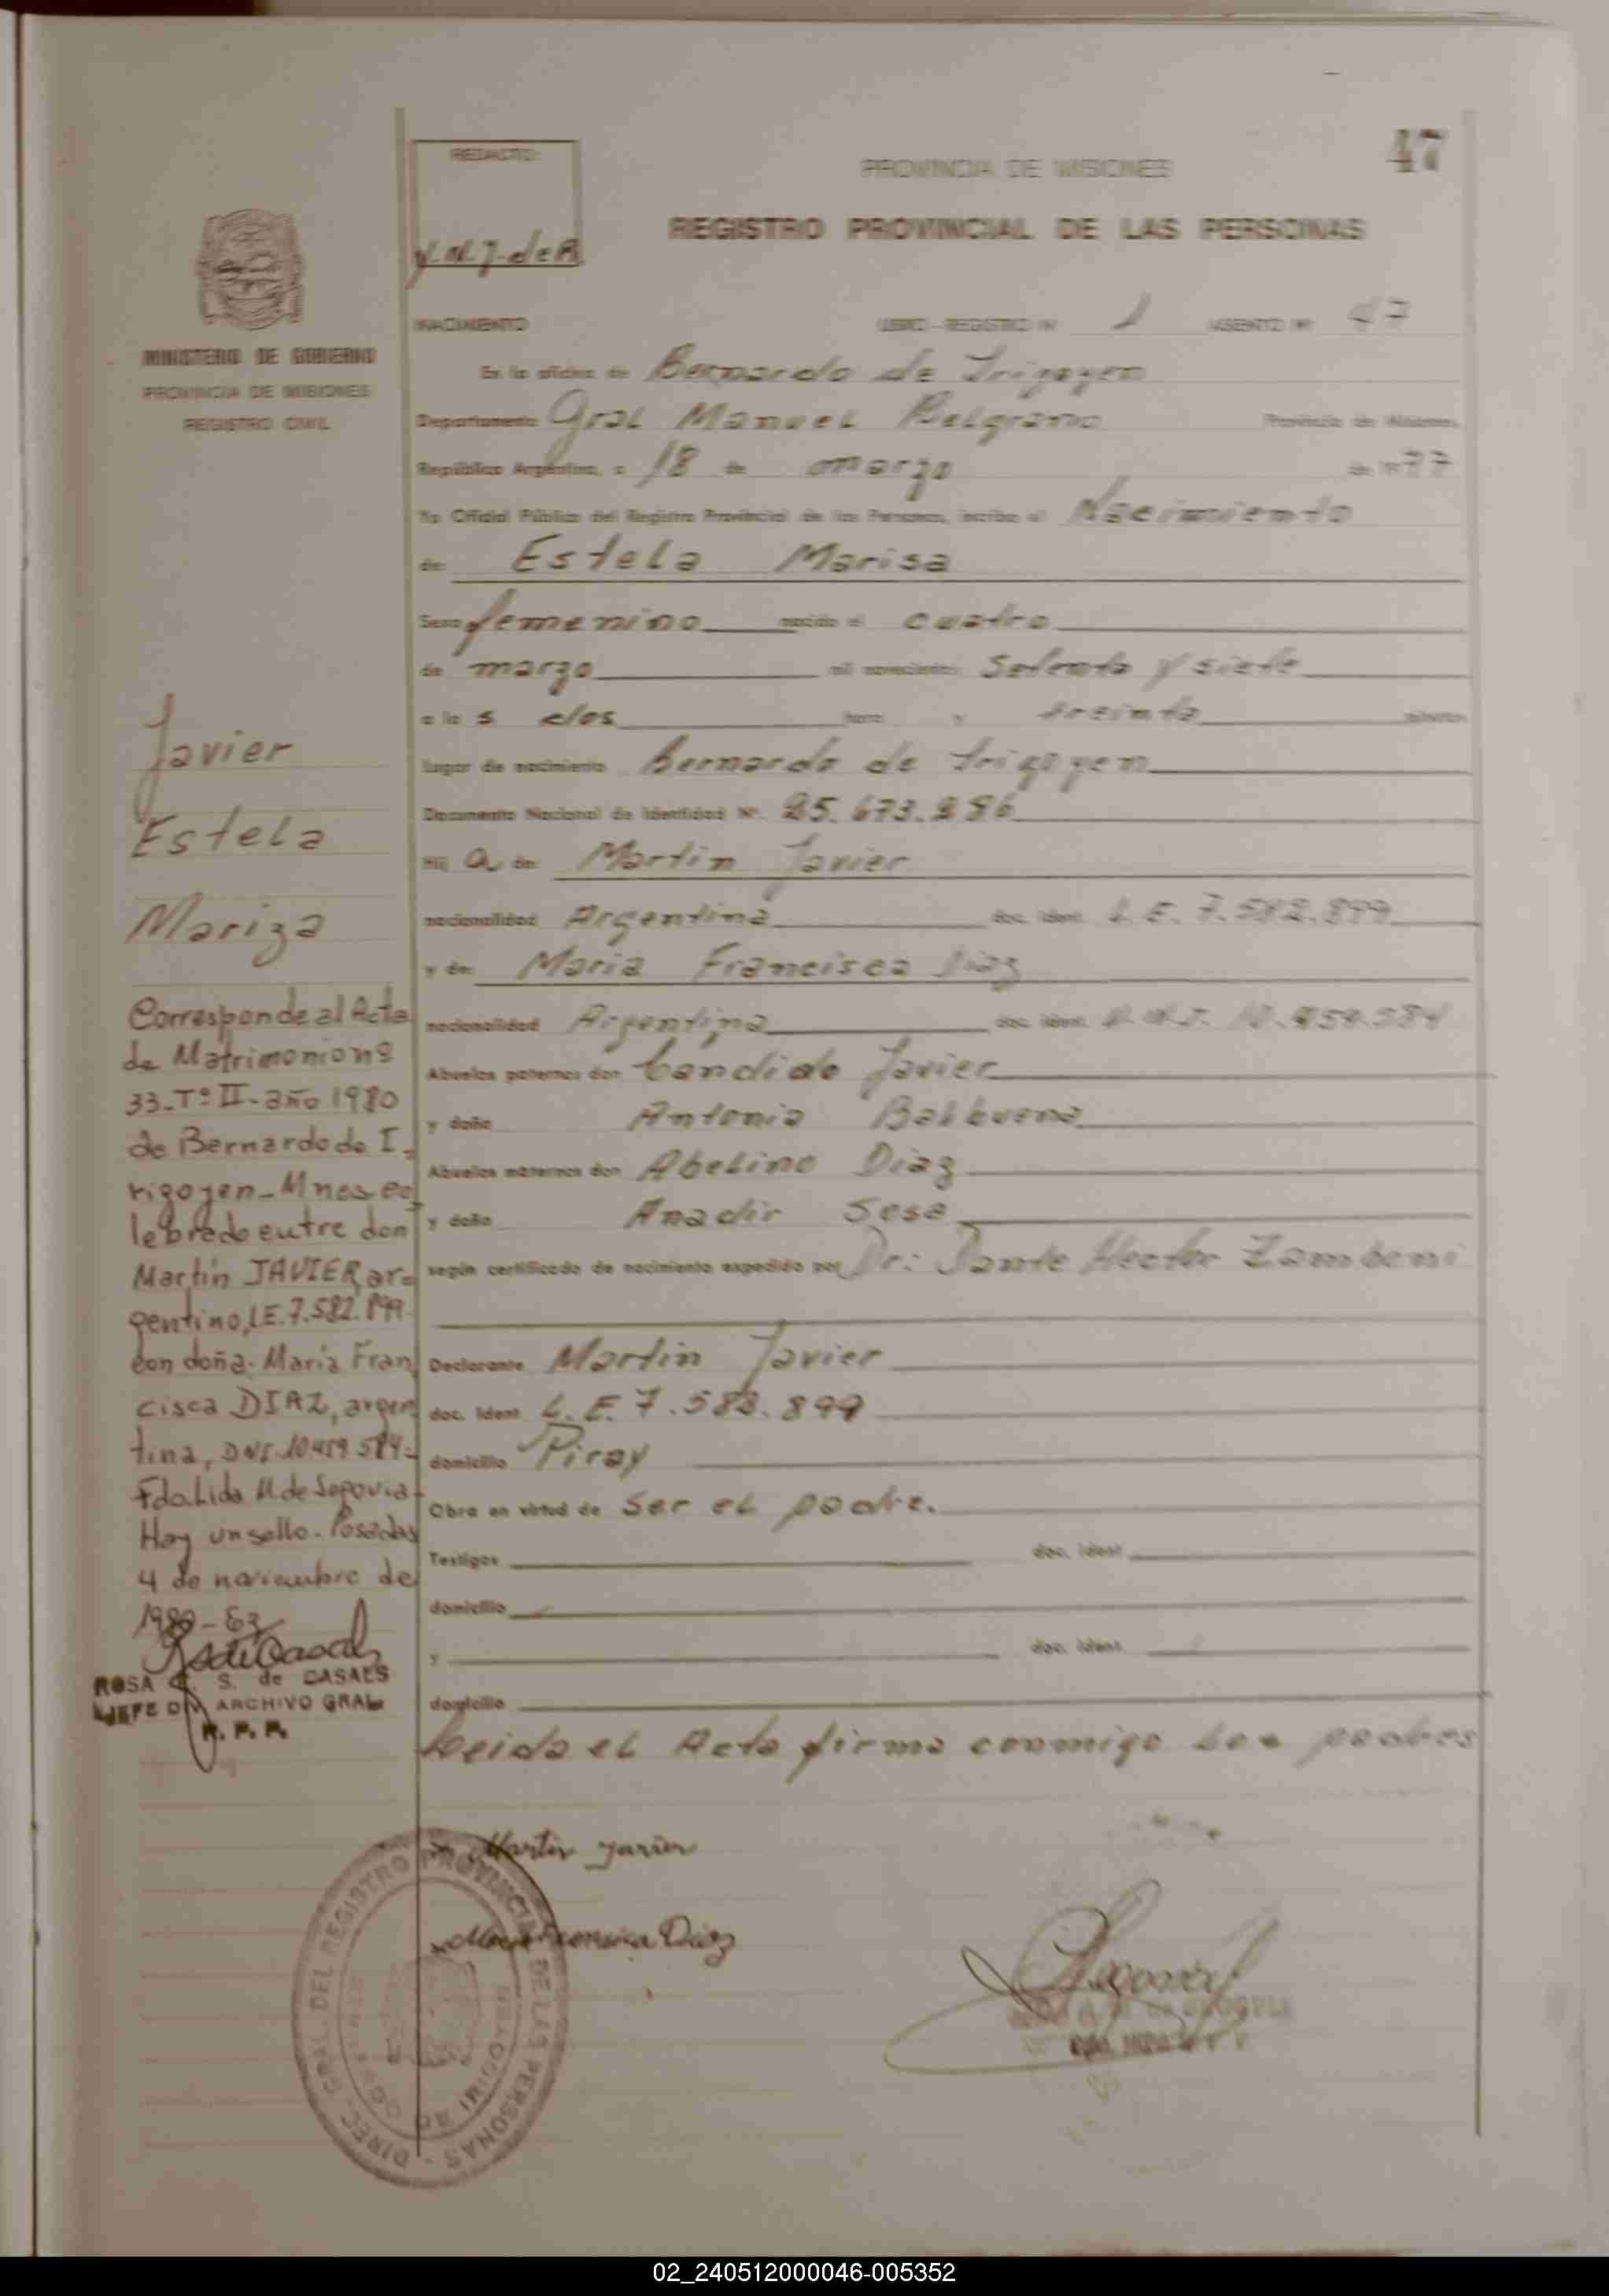 47
REDACTO:
PROVINCIA DE MISIONES
REGISTRO PROVINCIAL DE LAS PERSONAS
MINISTERIO DE GOBIERNO
PROVINCIA DE MISIONES
REGISTRO CIVIL
NACIMIENTO LIBRO - REGISTRO Nº 1 ASIENTO Nº 47
En la oficina de Bernardo de Irigoyen
Departamento Gral Manuel Belgrano Provincia de Misiones,
República Argentina, a 18 de marzo de 1977
Yo Oficial Público del Registro Provincial de las Personas, inscribo el Nacimiento
de Estela Marisa
Sexo femenino nacido el cuatro
de marzo mil novecientos setenta y siete
a las dos hora y treinta minutos
lugar de nacimiento Bernardo de Irigoyen
Documento Nacional de Identidad Nº. 25.673.286
Hij a de Martin Javier
nacionalidad Argentina doc. Ident. L.E. 7.582.899
y de Maria Francisca Diaz
nacionalidad Argentina doc. Ident. D.N.I. 10.459.584
Abuelos paternos don Candido Javier
y doña Antonia Balbuena
Abuelos maternos don Abelino Diaz
y doña Anadir Sosa
según certificado de nacimiento expedido por Dr: Dante Hector Zamboni
Declarante Martin Javier
doc. Ident. L.E. 7.582.899
domicilio Piray
Obra en virtud de ser el padre.
Testigos doc. Ident.
domicilio
y doc. Ident.
domicilio
Leida el Acta firma conmigo los padres
Javier
Estela
Mariza
Corresponde al Acta
de Matrimonio nº
33-Tº II-año 1980
de Bernardo de I-
rigoyen-Mnes-ce
lebrado entre don
Martín JAVIER, ar=
gentino, LE.7.582.899
con doña María Fran
cisca DIAZ, argen
tina, DNI.10459.584=
Fdo Lida M. de Segovia-
Hay un sello. Posadas
4 de noviembre de
1980-
ROSA S. de CASALS
JEFE DIV ARCHIVO GRAL
R. P. P.
Martin Javier
Maria Francisca Diaz
DIREC. GRAL. DEL REGISTRO PROVINCIAL DE LAS PERSONAS
BERNARDO DE IRIGOYEN
02_240512000046-005352